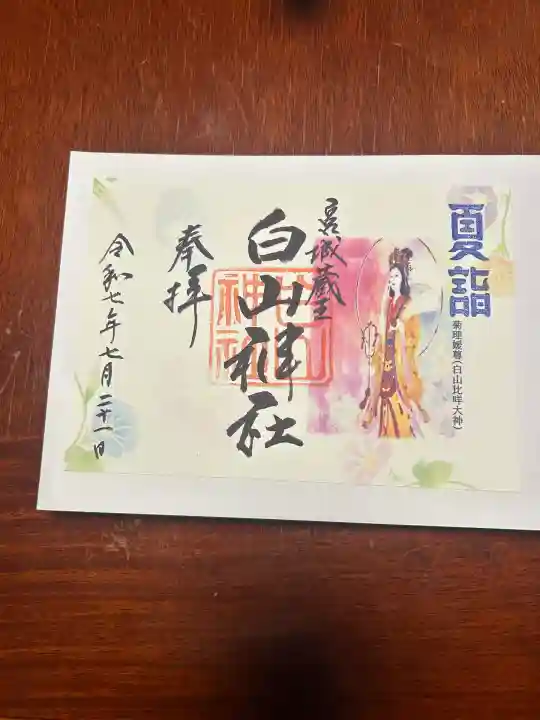 夏詣
菊理媛尊(白山比咩大神)
宮城蔵王
白山神社
奉拝
令和七年七月二十一日